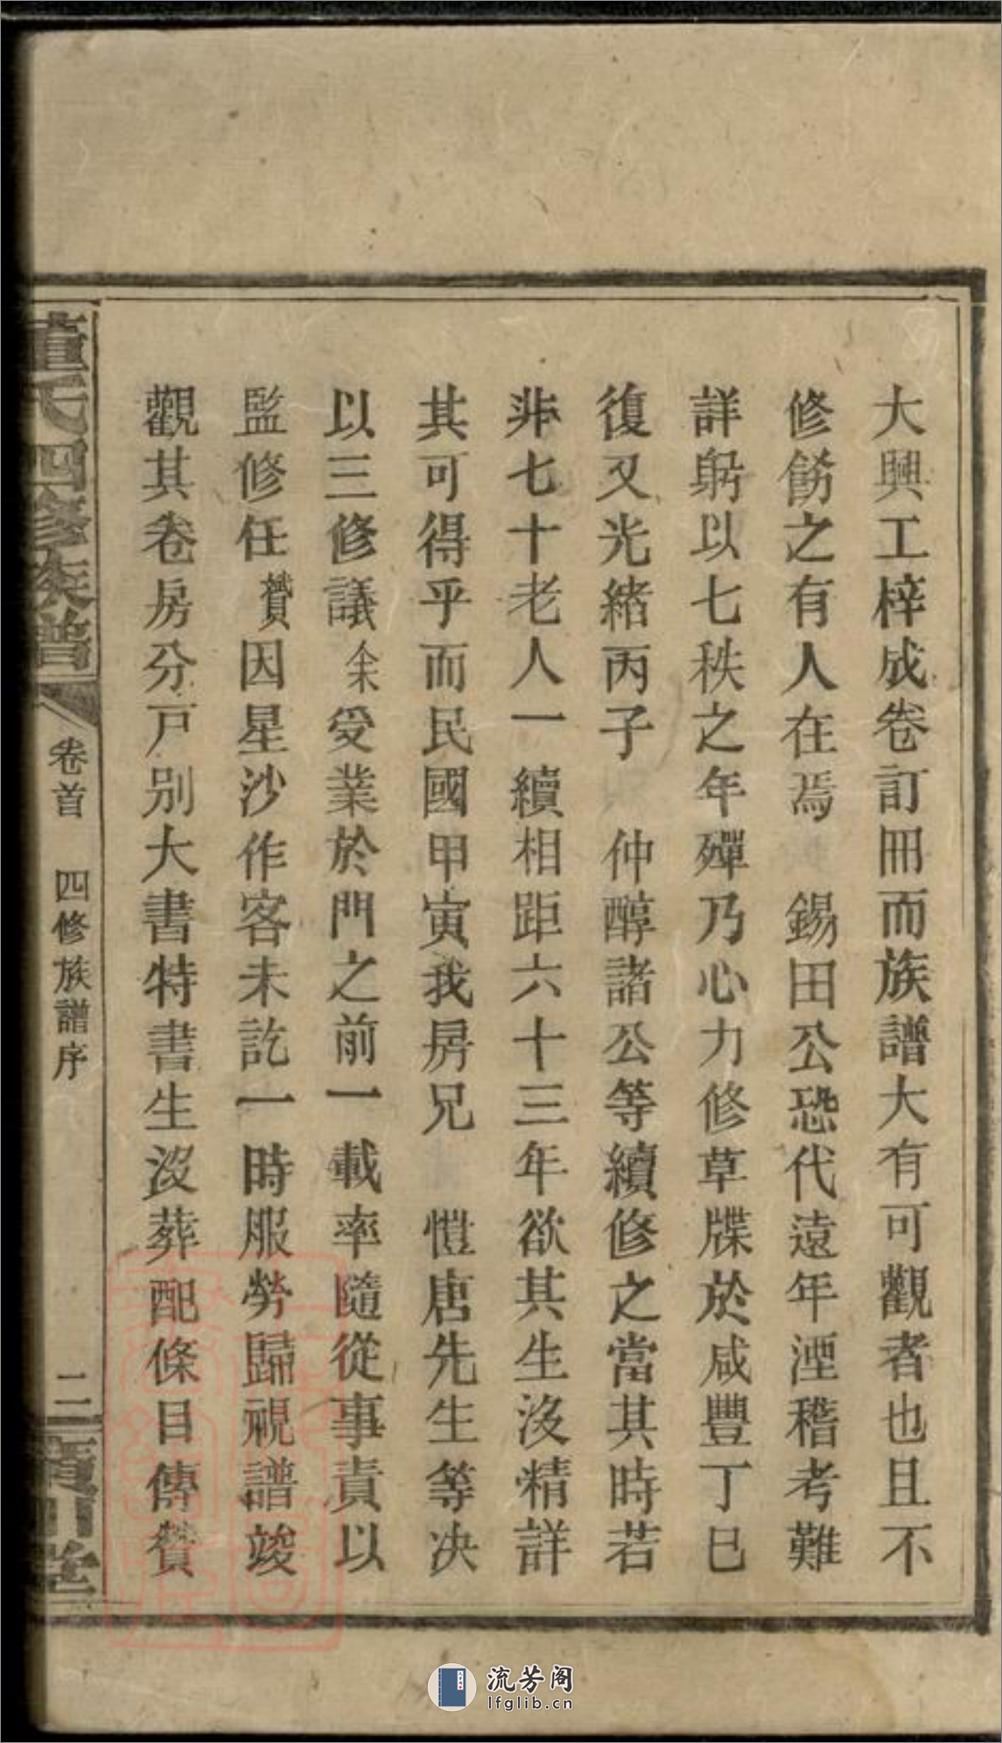 大興工梓成卷訂冊而族譜大有可觀者也且不
修餝之有人在焉　錫田公恐代遠年湮稽考難
詳躬以七秩之年殫乃心力修草牒於咸豐丁巳
復又光緒丙子　仲醇諸公等續修之當其時若
非七十老人一續相距六十三年欲其生沒精詳
其可得乎而民國甲寅我房兄　愷唐先生等决
以三修議余受業於門之前一載率隨從事責以
監修任贊因星沙作客未訖一時服勞歸視譜竣
觀其卷房分戶別大書特書生沒葬配條目傳贊
董氏四修族譜
卷首　四修族譜序
二
流芳阁
lfglib.cn